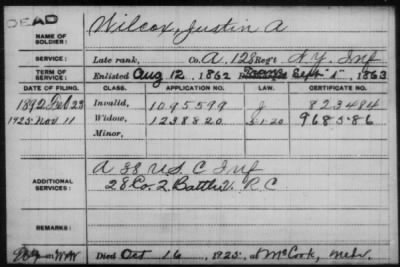 DEAD
NAME OF SOLDIER: Wilcox, Justin A
SERVICE: Late rank, Co. A, 128 Reg't N.Y. Inf
TERM OF SERVICE: Enlisted Aug 12, 1862 Sept 5, 1863
DATE OF FILING. CLASS. APPLICATION NO. LAW. CERTIFICATE NO.
1892 Feb 23 Invalid, 1095599 J 823484
1925 Nov 11 Widow, 1238820 5-1-20 968586
Minor,
ADDITIONAL SERVICES: A 38 U.S. C Inf
28 Co. 2 Battl V. R C
REMARKS:
Died Oct 16, 1925, at McCook, Nebr.